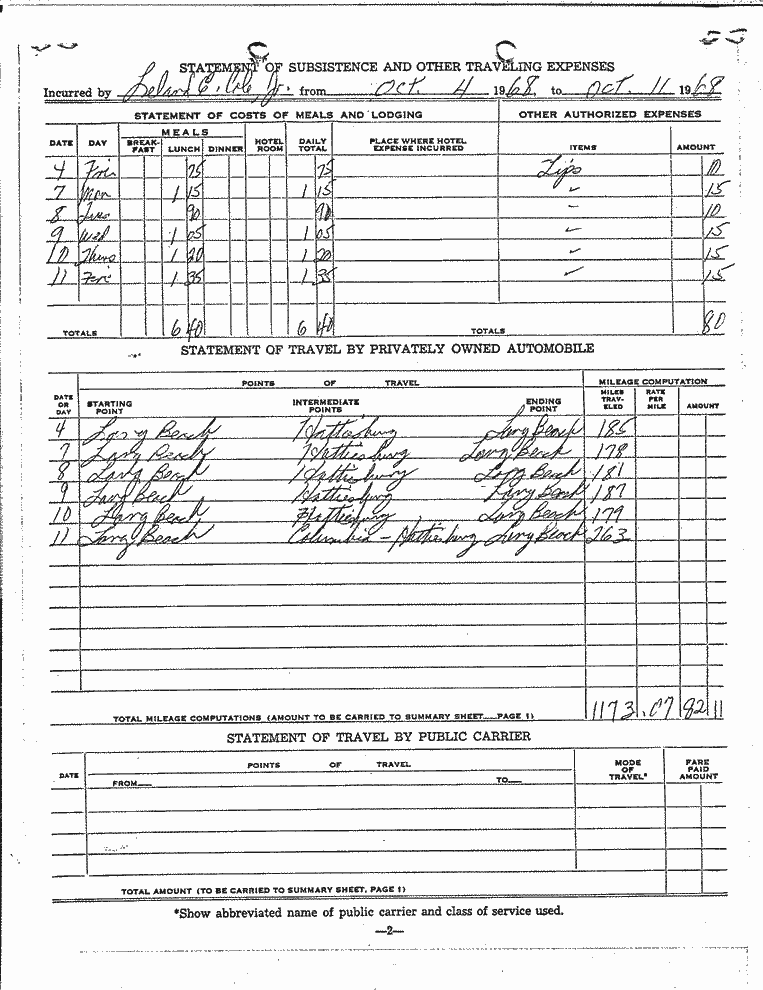 STATEMENT OF SUBSISTENCE AND OTHER TRAVELING EXPENSES
Incurred by Leland E. Cole, Jr. from Oct. 4 1968, to Oct. 11 1968
STATEMENT OF COSTS OF MEALS AND LODGING OTHER AUTHORIZED EXPENSES
DATE DAY MEALS BREAK-FAST LUNCH DINNER HOTEL ROOM DAILY TOTAL PLACE WHERE HOTEL EXPENSE INCURRED ITEMS AMOUNT
4 Fri 75 75 Tips 10
7 Mon 1 15 1 15 " 15
8 Tues 90 90 " 10
9 Wed 1 05 1 05 " 15
10 Thurs 1 20 1 20 " 15
11 Fri 1 35 1 35 " 15
TOTALS 6 40 6 40 TOTALS 80
STATEMENT OF TRAVEL BY PRIVATELY OWNED AUTOMOBILE
POINTS OF TRAVEL MILEAGE COMPUTATION
DATE OR DAY STARTING POINT INTERMEDIATE POINTS ENDING POINT MILES TRAV-ELED RATE PER MILE AMOUNT
4 Long Beach Hattiesburg Long Beach 185
7 Long Beach Hattiesburg Long Beach 178
8 Long Beach Hattiesburg Long Beach 181
9 Long Beach Hattiesburg Long Beach 187
10 Long Beach Hattiesburg Long Beach 179
11 Long Beach Columbia - Hattiesburg Long Beach 263
TOTAL MILEAGE COMPUTATIONS (AMOUNT TO BE CARRIED TO SUMMARY SHEET__PAGE 1) 1173 .07 82 11
STATEMENT OF TRAVEL BY PUBLIC CARRIER
DATE POINTS OF TRAVEL MODE OF TRAVEL* FARE PAID AMOUNT
FROM__ TO__
TOTAL AMOUNT (TO BE CARRIED TO SUMMARY SHEET, PAGE 1)
*Show abbreviated name of public carrier and class of service used.
—2—